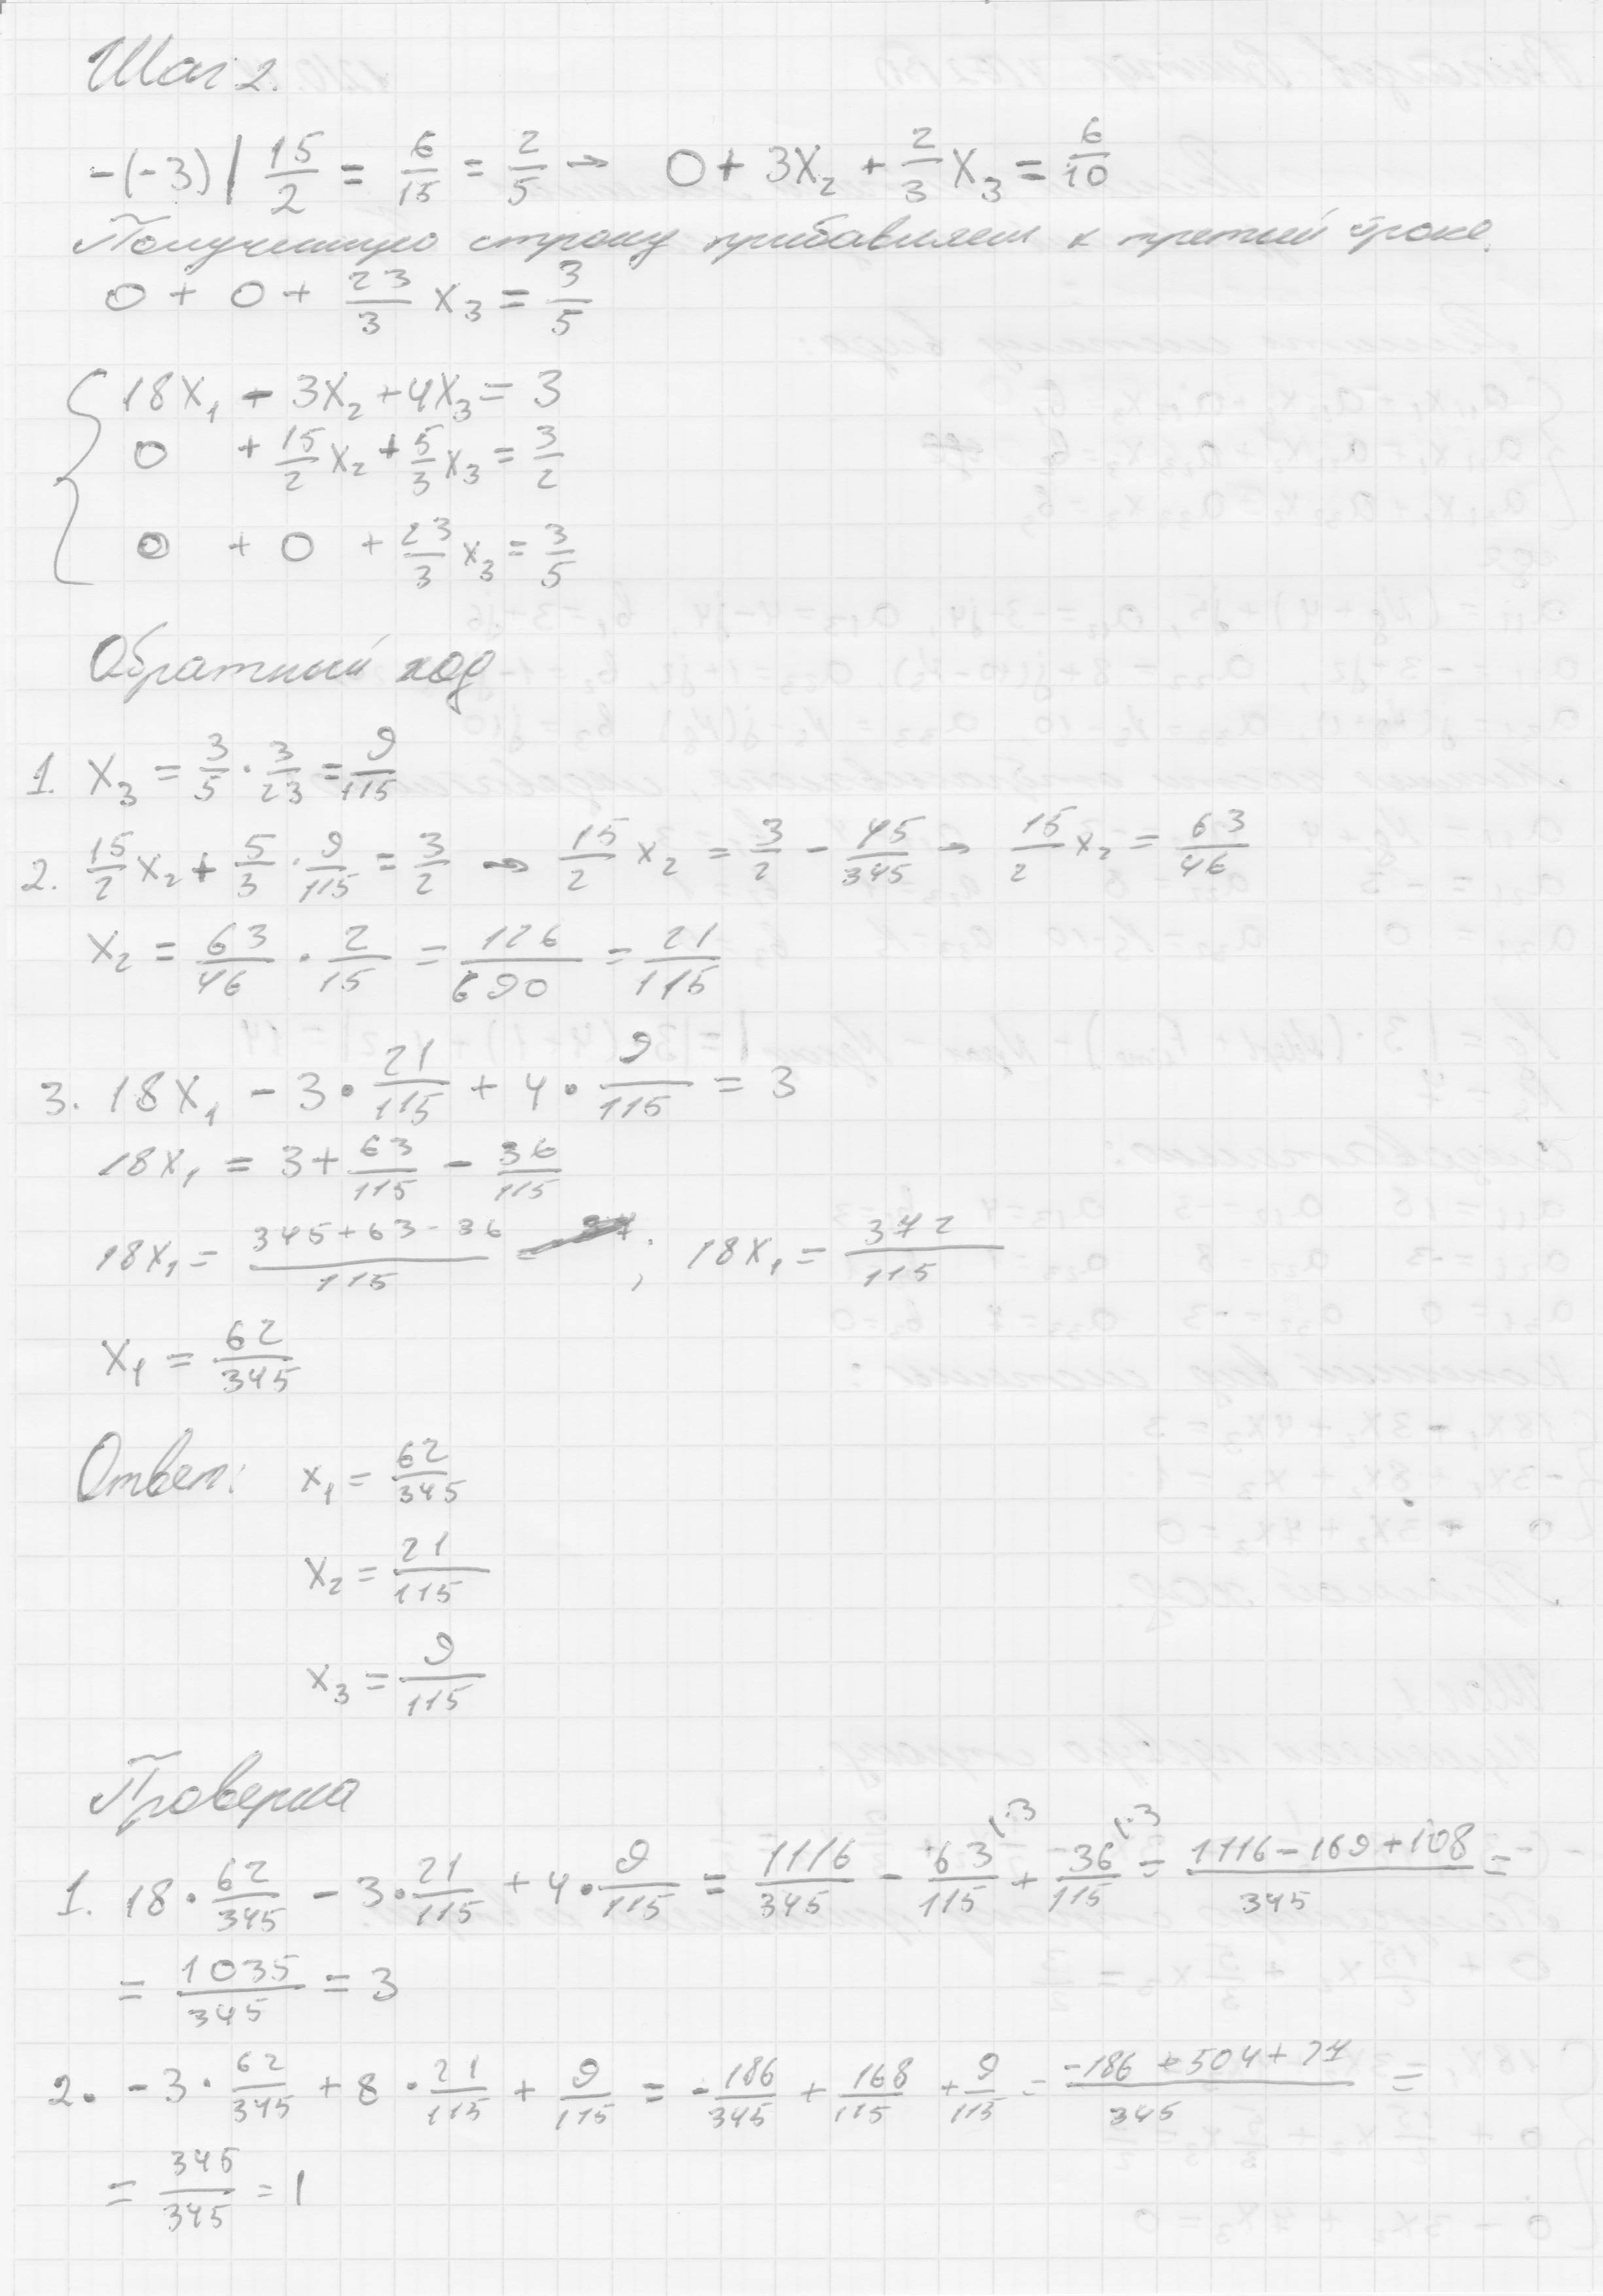 Шаг 2.
-(-3) | 15/2 = 6/15 = 2/5 → 0 + 3x₂ + 2/3 x₃ = 6/10
Полученную строку прибавляем к третьей строке.
0 + 0 + 23/3 x₃ = 3/5
18x₁ - 3x₂ + 4x₃ = 3
0 + 15/2 x₂ + 5/3 x₃ = 3/2
0 + 0 + 23/3 x₃ = 3/5
Обратный ход
1. x₃ = 3/5 · 3/23 = 9/115
2. 15/2 x₂ + 5/3 · 9/115 = 3/2 → 15/2 x₂ = 3/2 - 45/345 → 15/2 x₂ = 63/46
x₂ = 63/46 · 2/15 = 126/690 = 21/115
3. 18x₁ - 3 · 21/115 + 4 · 9/115 = 3
18x₁ = 3 + 63/115 - 36/115
18x₁ = (345 + 63 - 36)/115 ; 18x₁ = 372/115
x₁ = 62/345
Ответ: x₁ = 62/345
x₂ = 21/115
x₃ = 9/115
Проверка
1. 18 · 62/345 - 3 · 21/115 + 4 · 9/115 = 1116/345 - 63/115 (·3 + 36/115 (·3 = (1116 - 169 + 108)/345 =
= 1035/345 = 3
2. -3 · 62/345 + 8 · 21/115 + 9/115 = -186/345 + 168/115 + 9/115 = (-186 + 504 + 27)/345 =
= 345/345 = 1